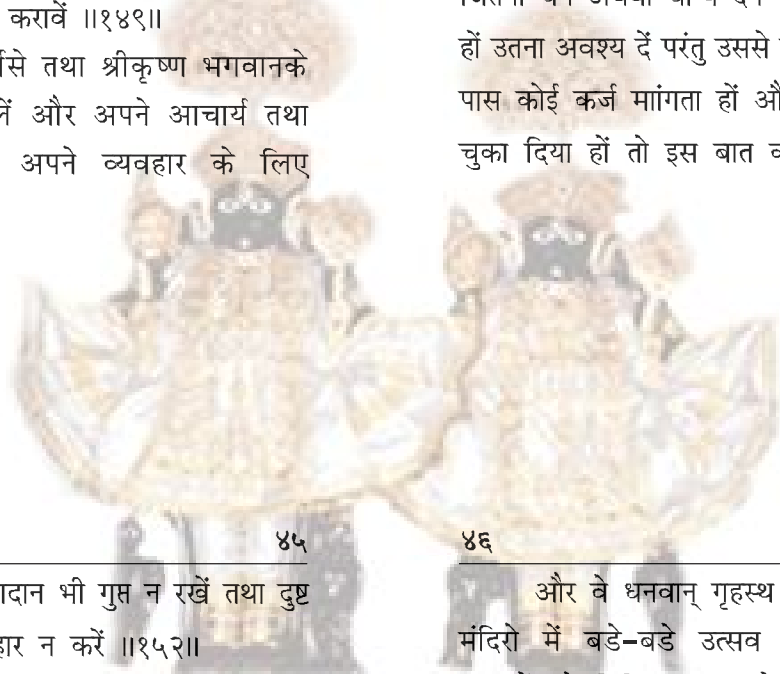 करावें ॥१४९॥
तथा श्रीकृष्ण भगवानके
और अपने आचार्य तथा
अपने व्यवहार के लिए
४५
भी गुप्त न रखें तथा दुष्ट
न करें ॥१५२॥
हों उतना अवश्य दें परंतु उससे
पास कोई कर्ज मांगता हों
चुका दिया हों तो इस बात
४६
और वे धनवान् गृहस्थ
मंदिरो में बडे-बडे उत्सव